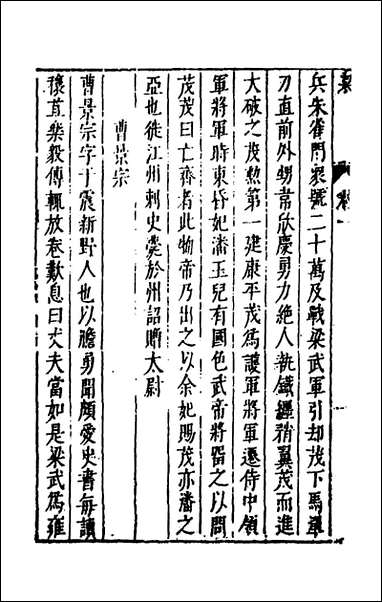 兵朱雀門衆號二十萬及戰梁武軍引却茂下馬單
刃直前外甥韋欣慶勇力絕人執鐵纏矟翼茂而進
大破之茂勲第一建康平茂爲護軍將軍遷侍中領
軍將軍時東昏妃潘玉兒有國色武帝將畱之以問
茂茂曰亡齊者此物帝乃出之以余妃賜茂亦潘之
亞也徙江州刺史薨於州詔贈太尉
曹景宗
曹景宗字子震新野人也以膽勇聞頗愛史書每讀
穰苴樂毅傳輒放卷歎息曰丈夫當如是梁武爲雍